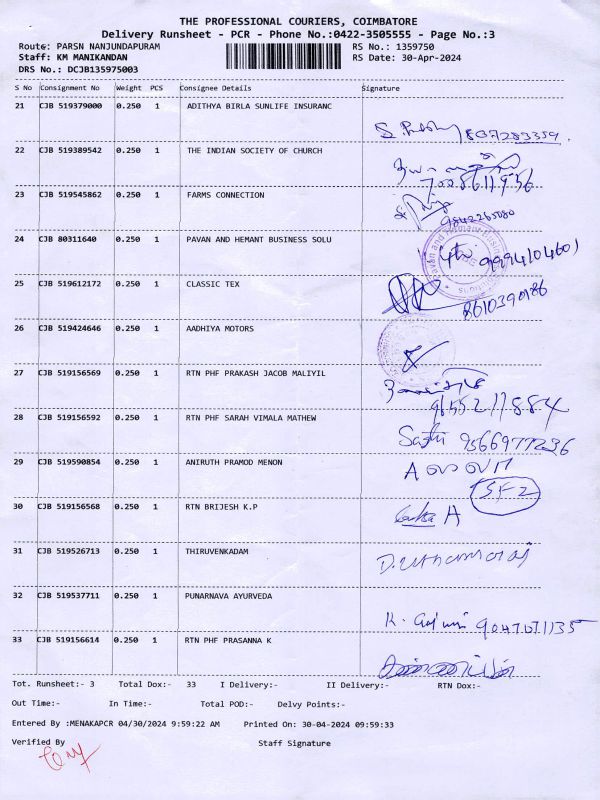 THE PROFESSIONAL COURIERS, COIMBATORE
Delivery Runsheet - PCR - Phone No.:0422-3505555 - Page No.:3
Route: PARSN NANJUNDAPURAM
RS No.: 1359750
Staff: KM MANIKANDAN
RS Date: 30-Apr-2024
DRS No.: DCJB135975003
S No Consignment No Weight PCS Consignee Details Signature
21 CJB 519379000 0.250 1 ADITHYA BIRLA SUNLIFE INSURANC
22 CJB 519389542 0.250 1 THE INDIAN SOCIETY OF CHURCH
23 CJB 519545862 0.250 1 FARMS CONNECTION
9842265080
24 CJB 80311640 0.250 1 PAVAN AND HEMANT BUSINESS SOLU
9994104601
25 CJB 519612172 0.250 1 CLASSIC TEX
8610390186
26 CJB 519424646 0.250 1 AADHIYA MOTORS
27 CJB 519156569 0.250 1 RTN PHF PRAKASH JACOB MALIYIL
9655211884
28 CJB 519156592 0.250 1 RTN PHF SARAH VIMALA MATHEW
9566977236
29 CJB 519590854 0.250 1 ANIRUTH PRAMOD MENON
SF2
30 CJB 519156568 0.250 1 RTN BRIJESH K.P
31 CJB 519526713 0.250 1 THIRUVENKADAM
D. Uthamaraj
32 CJB 519537711 0.250 1 PUNARNAVA AYURVEDA
33 CJB 519156614 0.250 1 RTN PHF PRASANNA K
Tot. Runsheet:- 3 Total Dox:- 33 I Delivery:- II Delivery:- RTN Dox:-
Out Time:- In Time:- Total POD:- Delvy Points:-
Entered By :MENAKAPCR 04/30/2024 9:59:22 AM Printed On: 30-04-2024 09:59:33
Verified By Staff Signature